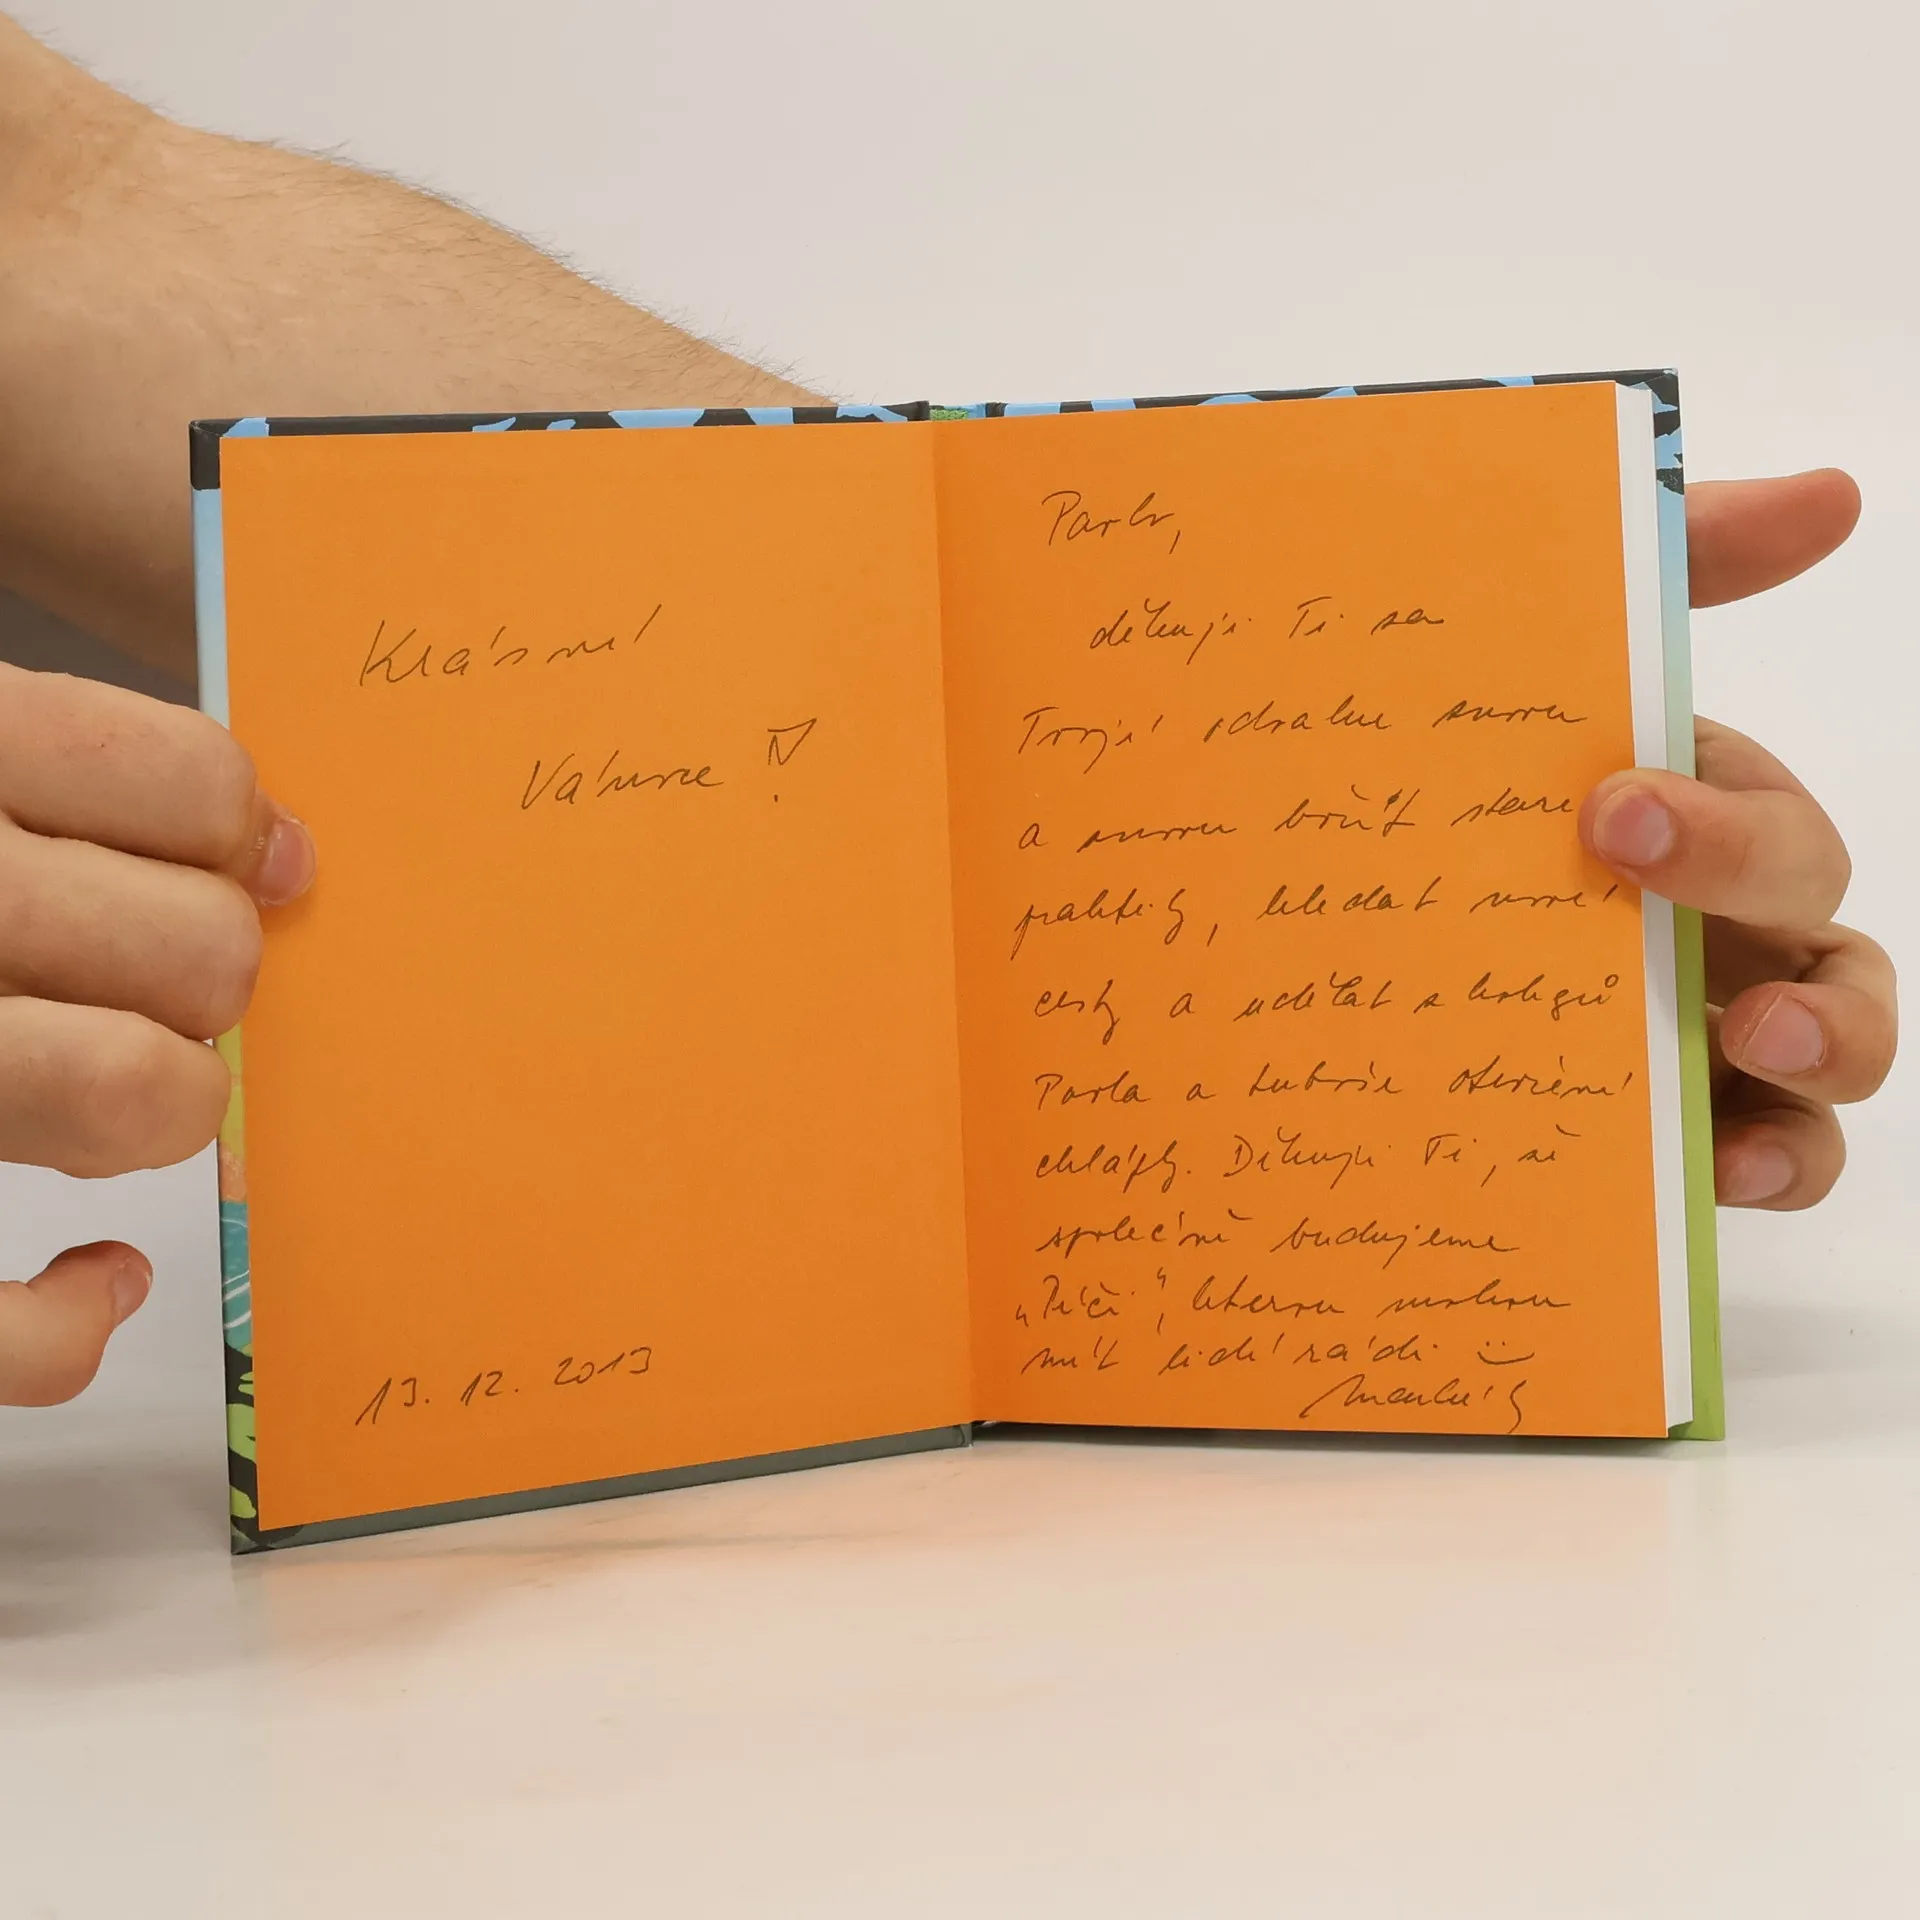 Krásné
Vánoce!
13. 12. 2013
Pavle,
děkuji Ti za
Tvoji odvahu znovu
a znovu bořit staré
praktiky, hledat nové
cesty a udělat z kolegů
Pavla a Luboše otevřené
chlápky. Děkuji Ti, že
společně budujeme
„Péči“, kterou mohou
mít lidé rádi :)